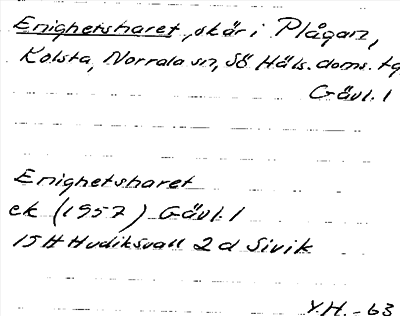 Enighetsharet, skär i Plågan,
Kolsta, Norrala sn, Sö Häls. doms. tg
Gävl. l
Enighetsharet
ek (1957) Gävl. l
15H Hudiksvall 2 d Sivik
Y.H. -63